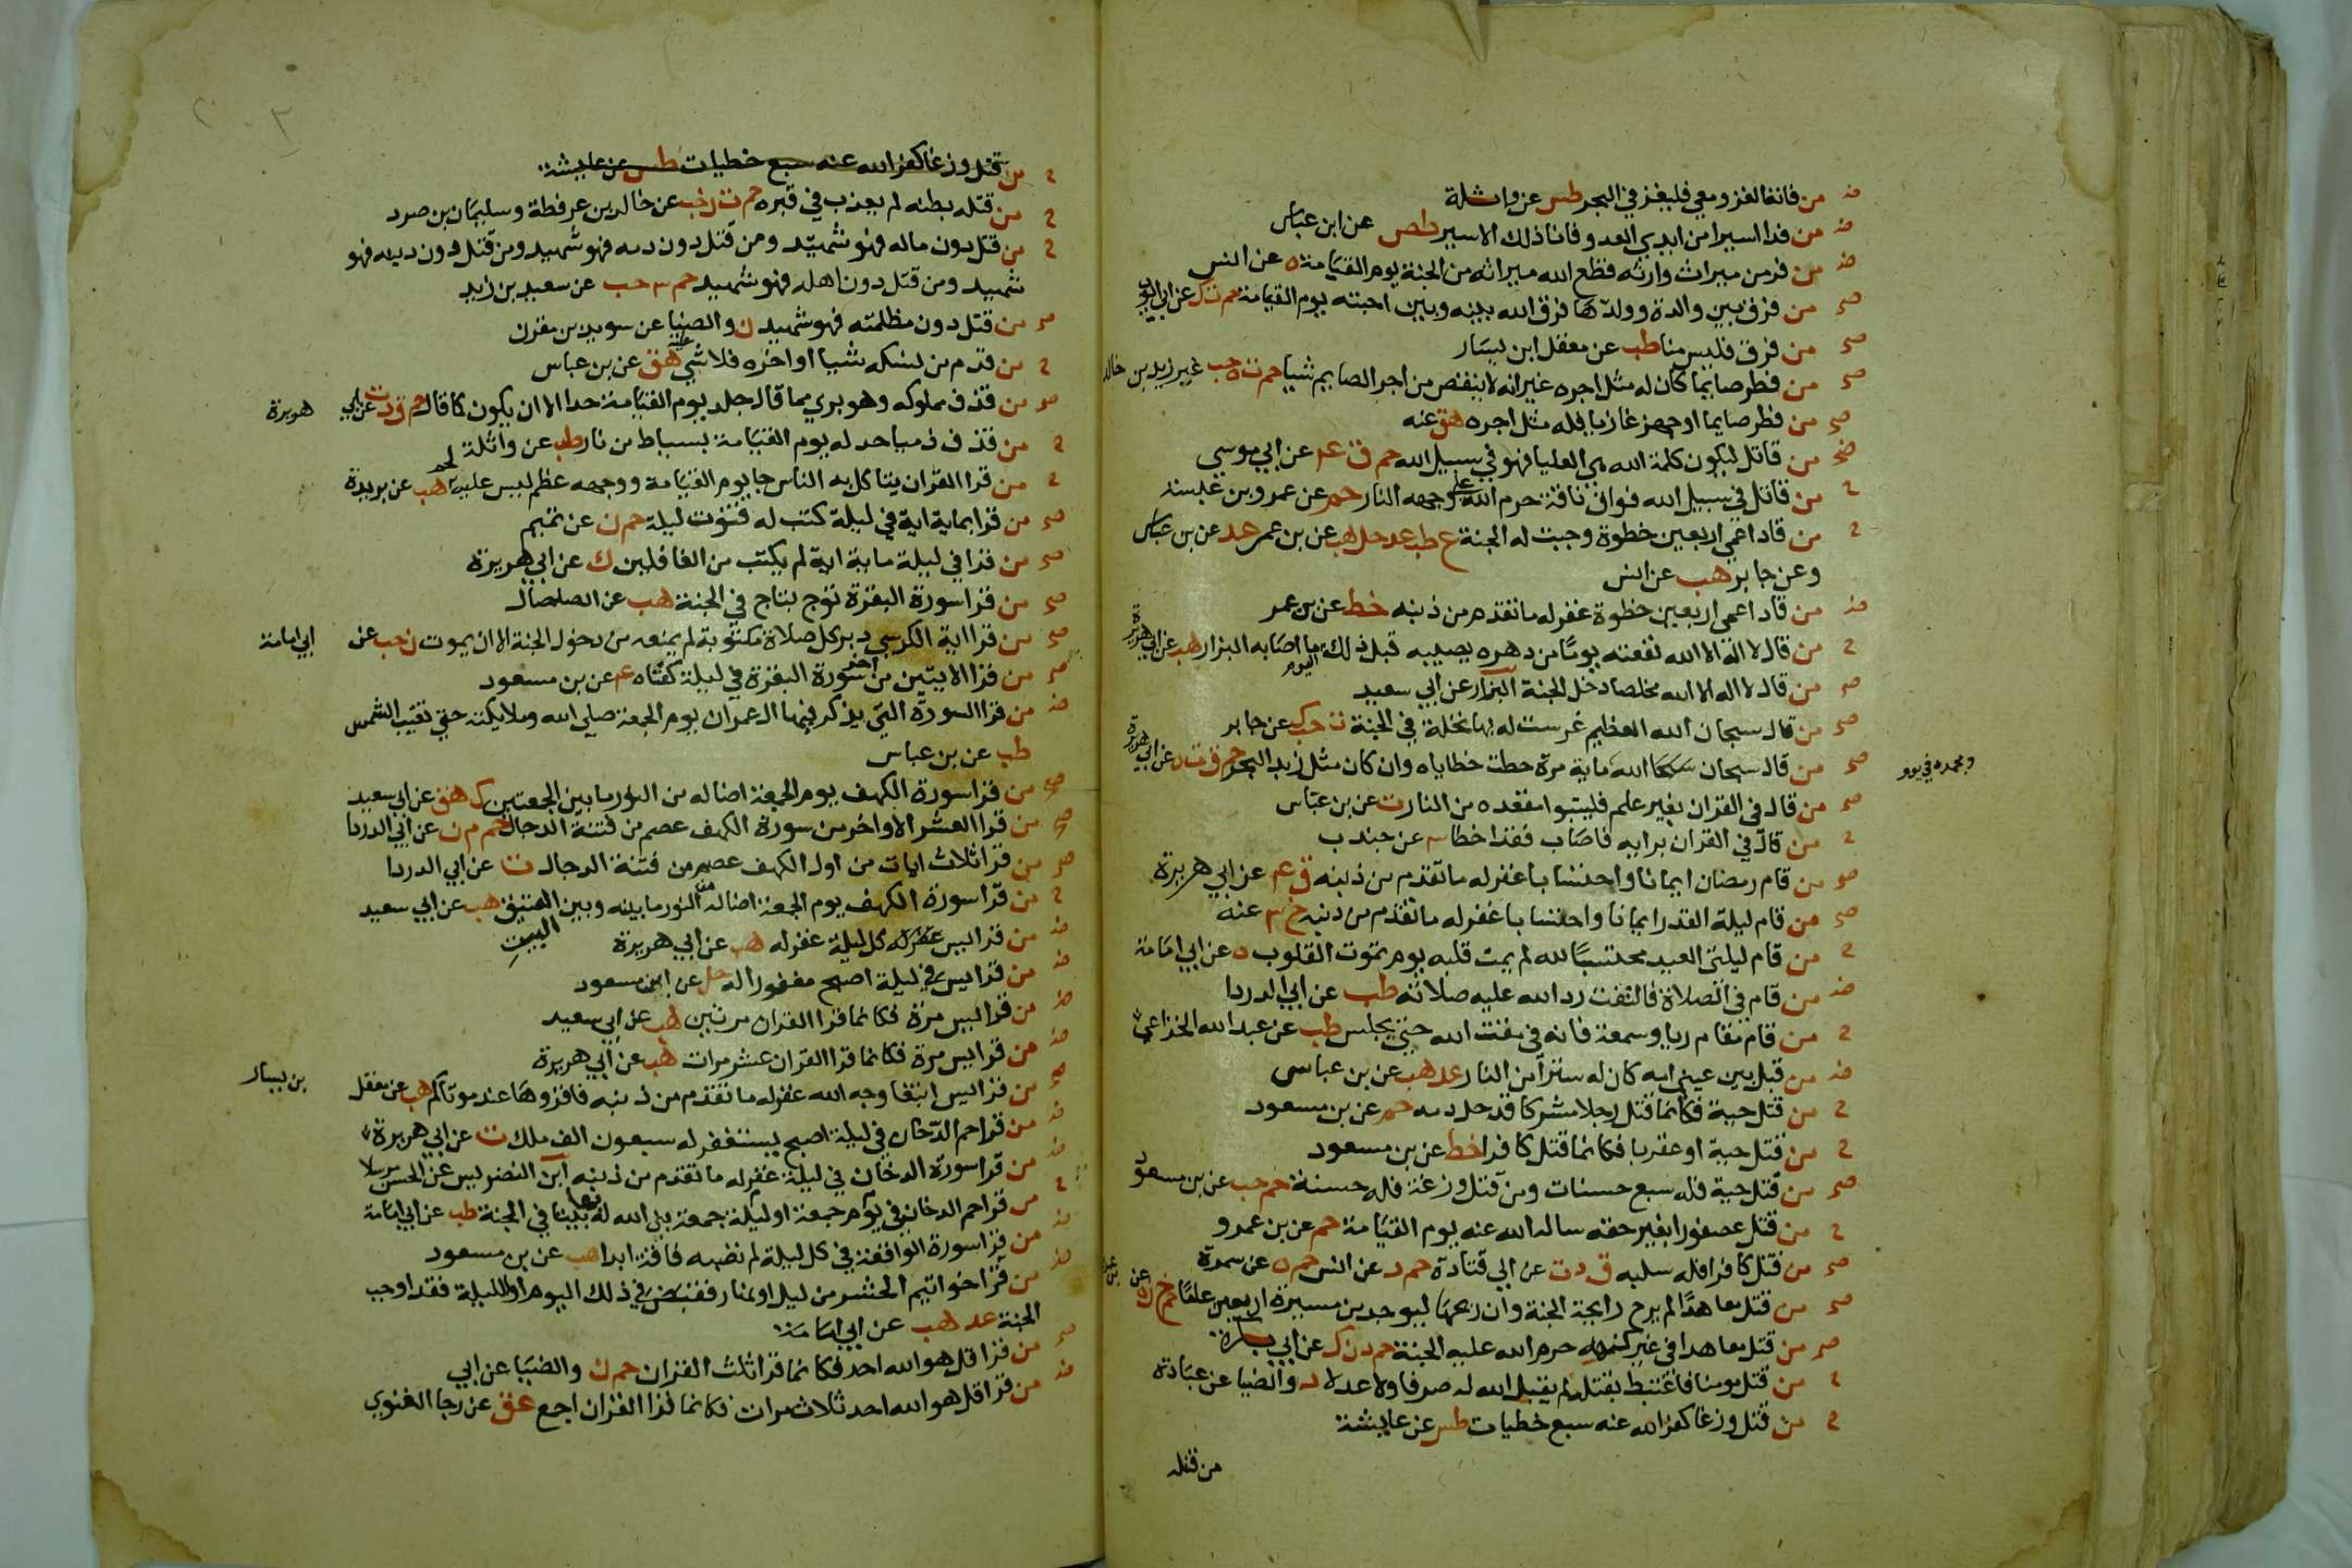 ض من فاته الغزو معي فليغز في البحر طس عن واثلة
ض من فدا اسيرا من ايدي العدو فانا ذلك الاسير طص عن ابن عباس
ض من فر من ميراث وارثه قطع الله ميراثه من الجنة يوم القيامة ه عن انس
صح من فرق بين والدة وولدها فرق الله بينه وبين احبته يوم القيامة حم ت ك عن ابي ايوب
صح من فرق فليس منا طب عن معقل ابن يسار
صح من فطر صايما كان له مثل اجره غير انه لا ينقص من اجر الصايم شيا حم ت ه حب عن زيد بن خالد
صح من فطر صايما او جهز غازيا فله مثل اجره هق عنه
صح من قاتل لتكون كلمة الله هي العليا فهو في سبيل الله حم ق عد عن ابي موسي
ح من قاتل في سبيل الله فواق ناقة حرم الله علي وجهه النار حم عن عمرو بن عبسة
ح من قاد اعمي اربعين خطوة وجبت له الجنة ع طب عد حل هب عن بن عمر عد عن بن عباس
وعن جابر هب عن انس
ض من قاد اعمي اربعين خطوة غفر له ما تقدم من ذنبه خط عن بن عمر
ح من قال لا اله الا الله نفعته يوما من دهره يصيبه قبل ذلك اليوم ما اصابه البزار هب عن ابي هريرة
صح من قال لا اله الا الله مخلصا دخل الجنة البزار عن ابي سعيد
صح من قال سبحان الله العظيم غرست له بها نخلة في الجنة ت حب ك عن جابر
صح من قال سبحان الله وبحمده في يوم ماية مرة حطت خطاياه وان كان مثل زبد البحر حم ق ت ه عن ابي هريرة
صح من قال في القران بغير علم فليتبوا مقعده من النار ت عن بن عباس
ح من قال في القران برايه فاصاب فقد اخطا ٣ عن جندب
صح من قام رمضان ايمانا واحتسابا غفر له ما تقدم من ذنبه ق عد عن ابي هريرة
صح من قام ليلة القدر ايمانا واحتسابا غفر له ما تقدم من ذنبه خ ٣ عنه
ح من قام ليلتي العيد محتسبا لله لم يمت قلبه يوم تموت القلوب ه عن ابي امامة
ض من قام في الصلاة فالتفت رد الله عليه صلاته طب عن ابي الدردا
ح من قام مقام ريا وسمعة فانه في مقت الله حتي يجلس طب عن عبد الله الخزاعي
ض من قبل بين عيني امه كان له سترا من النار عد هب عن بن عباس
ح من قتل حية فكانما قتل رجلا مشركا قد حل دمه حم عن بن مسعود
ح من قتل حية او عقربا فكانما قتل كافرا خط عن بن مسعود
صح من قتل حية فله سبع حسنات ومن قتل وزغة فله حسنة حم حب عن بن مسعود
ح من قتل عصفورا بغير حقه ساله الله عنه يوم القيامة حم عن بن عمرو
صح من قتل كافرا فله سلبه ق د ت عن ابي قتادة حم د عن انس حم ه عن سمرة
صح من قتل معاهدا لم يرح رايحة الجنة وان ريحها ليوجد من مسيرة اربعين عاما حم خ ن ه عن
صح من قتل معاهدا في غير كنهه حرم الله عليه الجنة حم د ن ك عن ابي بكرة
ح من قتل مومنا فاغتبط بقتله لم يقبل الله له صرفا ولا عدلا د والضيا عن عبادة
ح من قتل وزغا كفر الله عنه سبع خطيات طس عن عايشة
من قتله
ح من قتل وزغا كفر الله عنه سبع خطيات طس عن عايشة
ح من قتله بطنه لم يعذب في قبره حم ت ن حب عن خالد بن عرفطة وسليمان بن صرد
ح من قتل دون ماله فهو شهيد ومن قتل دون دمه فهو شهيد ومن قتل دون دينه فهو
شهيد ومن قتل دون اهله فهو شهيد حم ٣ حب عن سعيد بن زيد
صح من قتل دون مظلمته فهو شهيد ن والضيا عن سويد بن مقرن
ح من قدم من نسكه شيا او اخره فلا شي عليه هق عن بن عباس
صح من قذف مملوكه وهو بري مما قال جلد يوم القيامة حدا الا ان يكون كما قال حم ق د ت عن ابي هريرة
ح من قذف ذميا حد له يوم القيامة بسياط من نار طب عن واثلة
ح من قرا القران يتاكل به الناس جا يوم القيامة ووجهه عظم ليس عليه لحم هب عن بريدة
صح من قرا بماية اية في ليلة كتب له قنوت ليلة حم ن عن تميم
صح من قرا في ليلة ماية اية لم يكتب من الغافلين ك عن ابي هريرة
صح من قرا سورة البقرة توج بتاج في الجنة هب عن الصلصال
صح من قرا اية الكرسي دبر كل صلاة مكتوبة لم يمنعه من دخول الجنة الا ان يموت ن حب عن ابي امامة
صح من قرا الايتين من اخر سورة البقرة في ليلة كفتاه عد عن بن مسعود
ض من قرا السورة التي يذكر فيها ال عمران يوم الجمعة صلي الله وملايكته حتي تغيب الشمس
طب عن بن عباس
صح من قرا سورة الكهف يوم الجمعة اضا له من النور ما بين الجمعتين ك هق عن ابي سعيد
صح من قرا العشر الاواخر من سورة الكهف عصم من فتنة الدجال حم م ن عن ابي الدردا
صح من قرا ثلاث ايات من اول الكهف عصم من فتنة الدجال ت عن ابي الدردا
ح من قرا سورة الكهف يوم الجمعة اضا له من النور ما بينه وبين البيت العتيق هب عن ابي سعيد
ض من قرا يس كل ليلة غفر له هب عن ابي هريرة
ض من قرا يس في ليلة اصبح مغفورا له حل عن ابن مسعود
ض من قرا يس مرة فكانما قرا القران مرتين هب عن ابي سعيد
ض من قرا يس مرة فكانما قرا القران عشر مرات هب عن ابي هريرة
صح من قرا يس ابتغا وجه الله غفر له ما تقدم من ذنبه فاقروها عند موتاكم هب عن معقل بن يسار
ض من قرا حم الدخان في ليلة اصبح يستغفر له سبعون الف ملك ت عن ابي هريرة
ض من قرا سورة الدخان في ليلة غفر له ما تقدم من ذنبه ابن الضريس عن الحسن مرسلا
ح من قرا حم الدخان في يوم جمعة او ليلة جمعة بني الله له بها بيتا في الجنة طب عن ابي امامة
ض من قرا سورة الواقعة في كل ليلة لم تصبه فاقة ابدا هب عن بن مسعود
ض من قرا خواتيم الحشر من ليل او نهار فقبض في ذلك اليوم او الليلة فقد اوجب
الجنة عد هب عن ابي امامة
صح من قرا قل هو الله احد فكانما قرا ثلث القران حم ن والضيا عن ابي
ض من قرا قل هو الله احد ثلاث مرات فكانما قرا القران اجمع عق عن رجا الغنوي